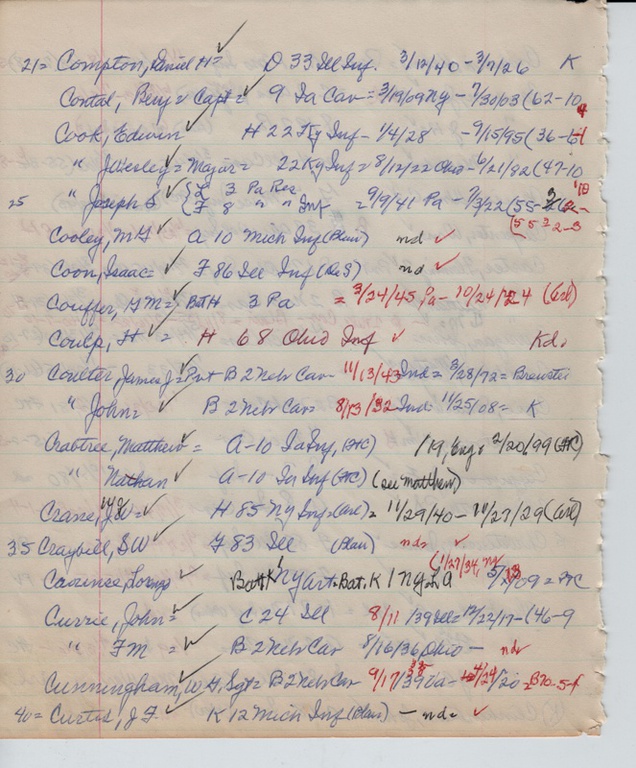 21= Compton, Daniel H= ✓ D 33 Ill Inf. 3/12/40 - 3/7/26 K
Contal, Benj = Capt = 9 Ia Cav = 3/19/09 Ny - 7/30/03 (62-10
Cook, Edwin ✓ H 22 Ky Inf - 1/4/28 - 9/15/95 (36-
" J Wesley = Major = 22 Ky Inf = 8/12/22 Ohio - 6/21/82 (47-10
25 " Joseph ✓ 3 Pa Res
F 8 " " Inf = 9/9/41 Pa - 7/3/22 (55-
Cooley, M ✓ A 10 Mich Inf (Blair) nd ✓
Coon, Isaac = ✓ F 86 Ill Inf nd ✓
Couffer, HM = ✓ Bat H 3 Pa = 3/24/45 Pa - 10/24/ 24
Coulp, H ✓ = H 68 Ohio Inf ✓ Kd.
30 Coulter, James J = Pvt B 2 Nebr Cav 11/13/43 Ind = 3/28/72 = Brewster
" John = ✓ B 2 Nebr Cav = 8/13/32 Ind 11/25/08 = K
Crabtree, Matthew = A-10 Ia Inf, (HC) /19, Eng. 2/20/99 (HC)
" Nathan ✓ A-10 Ia Inf (HC) (see Matthew)
Crane, JW = ✓ H 85 Ny Inf = (Arl) = 11/29/40 - 10/27/29 (Arl)
35 Craybill, SW ✓ F 83 Ill (Blair) nd. ✓
(1/27/34, Ny
✓ Batt K Ny Art = Bat. K 1 Ny L A = HC
Currie, John = C 24 Ill 8/11/39 Ill = 12/22/17 - (46-9
" FM = ✓ B 2 Nebr Cav 8/16/36 Ohio - nd
Cunningham, W H, Sgt = B 2 Nebr Cav 9/17/ 4/24/20 = B70-5-f
40 = Curtis, J F. ✓ K 12 Mich Inf (Blair) - nd. ✓